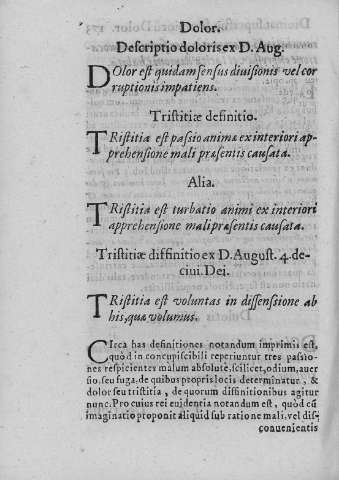 Dolor.
Descriptio doloris ex D. Aug.
DOlor est quidam sensus diuisionis vel cor
ruptionis impatiens.
Tristitiæ definitio.
TRistitia est passio animæ ex interiori ap-
prehensione mali præsentis causata.
Alia.
TRistitia est turbatio animi ex interiori
apprehensione mali præsentis causata.
Tristitiæ diffinitio ex D. August. 4. de-
ciui. Dei.
TRistitia est voluntas in dissensione ab
his, quæ volumus.
CIrca has definitiones notandum imprimis est,
quòd in concupiscibili reperiuntur tres passio-
nes respicientes malum absolute. scilicet, odium, auer
sio, seu fuga. de quibus propris locis determinatur, &
dolor seu tristitia, de quorum diffinitionibus agitur
nunc. Pro cuius rei euidentia notandum est, quòd cũ
imaginatio proponit aliquid sub ratione mali. vel dis-
conuenientis